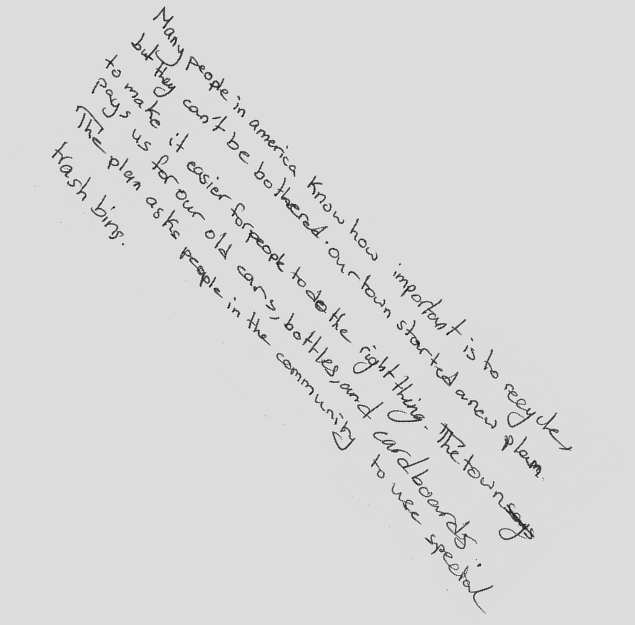 Many people in america know how important is to recycle,
but they can't be bothered. Our town started a new plan
to make it easier for people to do the right thing. The town says
pays us for our old cars, bottles, and cardboards.
The plan asks people in the community to use special
trash bins.